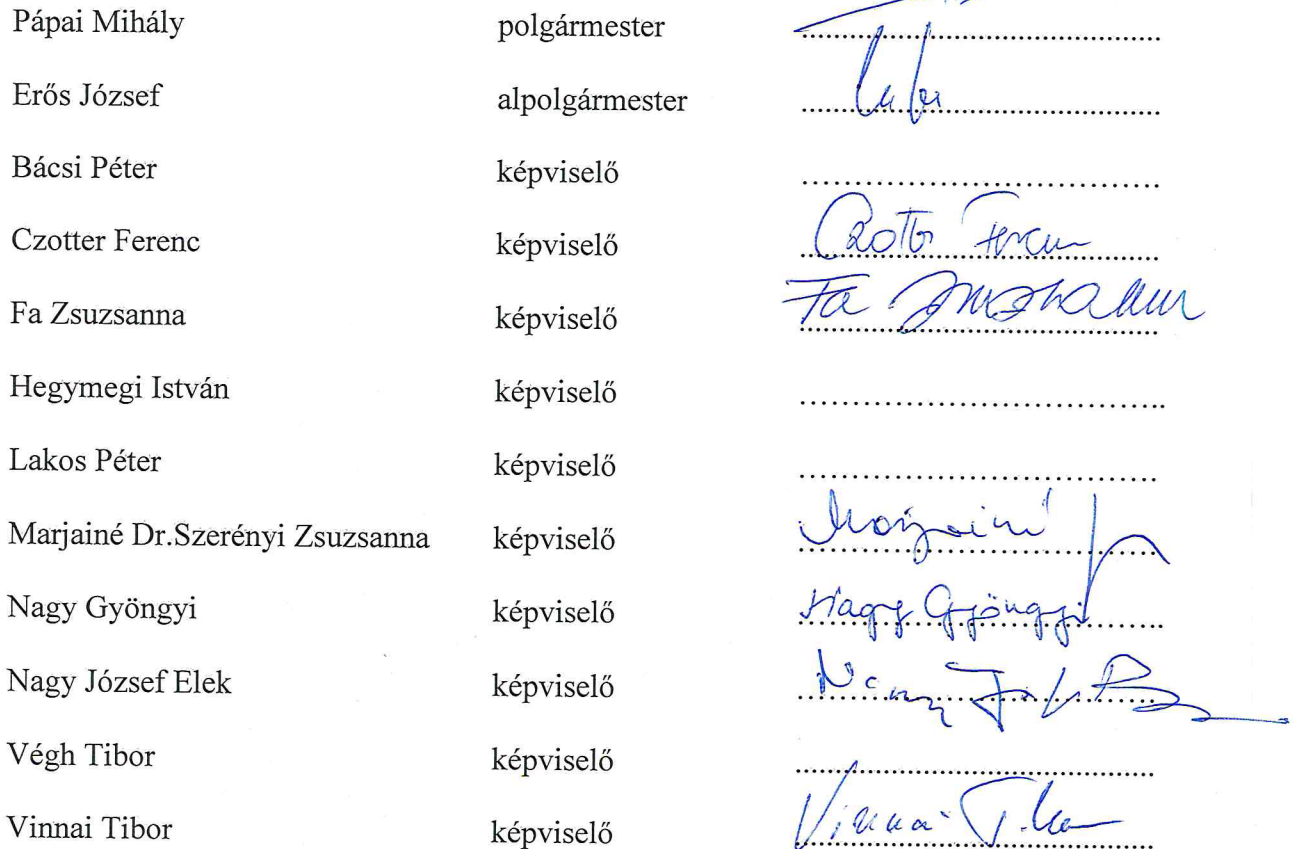 Pápai Mihály polgármester ........................................
Erős József alpolgármester ........................................
Bácsi Péter képviselő ........................................
Czotter Ferenc képviselő ........................................ Czotter Ferenc
Fa Zsuzsanna képviselő ........................................ Fa Zsuzsanna
Hegymegi István képviselő ........................................
Lakos Péter képviselő ........................................
Marjainé Dr.Szerényi Zsuzsanna képviselő ........................................ Marjainé
Nagy Gyöngyi képviselő ........................................ Nagy Gyöngyi
Nagy József Elek képviselő ........................................ Nagy
Végh Tibor képviselő ........................................
Vinnai Tibor képviselő ........................................ Vinnai Tibor